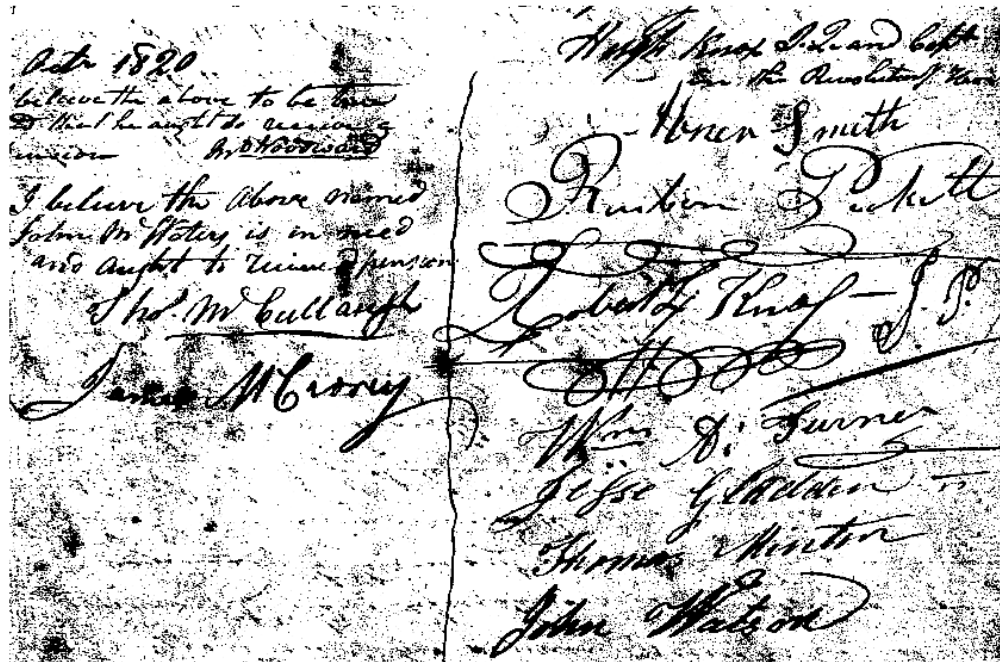 Octr 1820
believe the above to be true
d that he aught to receive a
pension Wm Woodward
I believe the above named
John McWaters is in need
and aught to receive a pension
Thos. McCullaugh
James McCrorey
Hugh Knox J. Q. and Capt
in the Revolution
Abner Smith
Reuben Pickett
Robert Knox — J. P.
Wm D. Turner
Jesse Gladden
Thomas Minton
John Watson